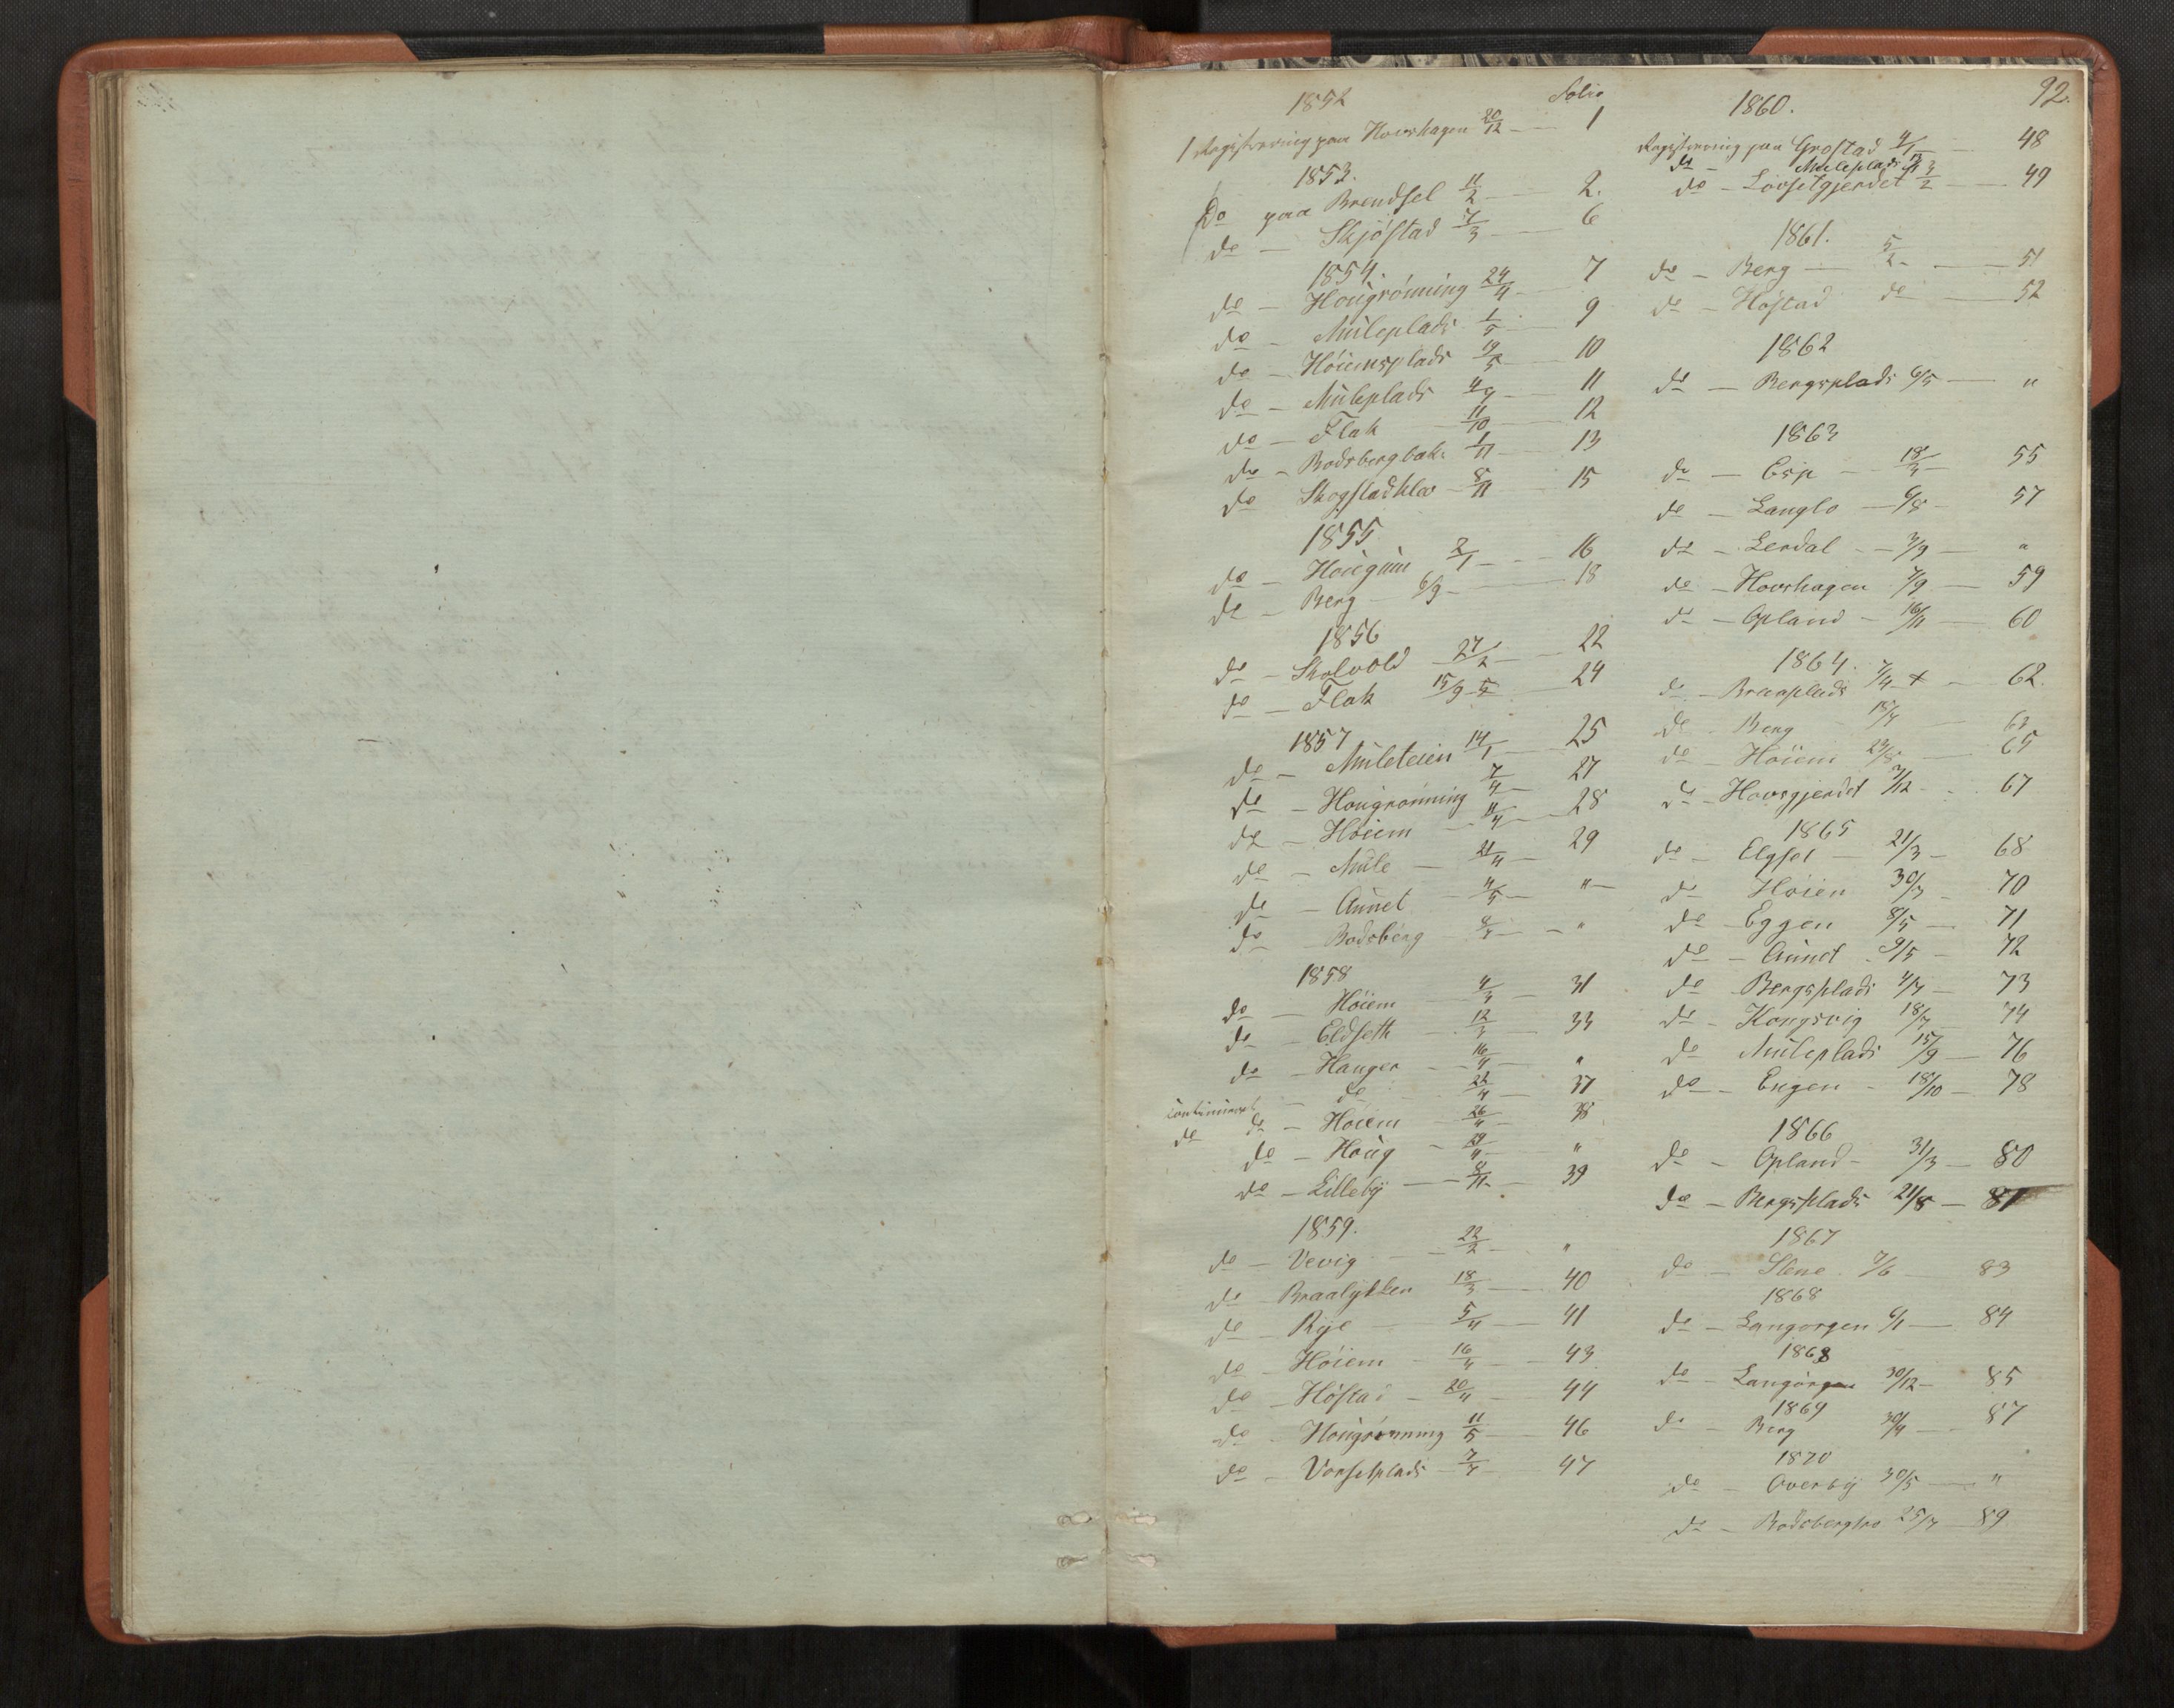 92.
1852 Folio
1 Registrering paa Hovshagen 20/12 — 1
1853.
Do paa Brendsel 11/2 — 2.
do — Skjöstad 7/3 — 6
1854.
do — Hougrönning 24/4 — 7
do — Muleplads 1/5 — 9
do — Höiemsplads 19/5 — 10
do — Muleplads — 11
do — Flak 11/10 — 12
do — Rodsbergbak. 1/11 — 13
do Skogstadklev — 8/11 15
1855
do — Hougum 2/1 — 16
do — Berg — 6/9 — 18
1856
do — Skolvold 27/2 — 22
do — Flak 15/9 — 24
1857
do — Muleteien 14/1 — 25
do — Hougrönning 7/4 27
do — Höiem — 11/4 — 28
do — Mule — 21/4 — 29
do — Aunet — 4/5 — "
do — Rodsberg — "
1858
do — Höiem 4/3 — 31
do — Eldseth 12/3 — 33
do — Hanger — 16/4 — "
— do — 22/4 — 37
Continueret
do do — Höiem — 26/4 — 38
do — Houg — 29/4 — "
do — Lilleby — 8/11 — 39
1859.
do — Vevig — 22/2 — "
do — Braalykken 18/3 — 40
do — Rye — 5/4 — 41
do — Höiem — 16/4 — 43
do — Höstad — 20/4 — 44
do — Hougrönning 11/5 — 46
do — Vorsetplads — 7/7 — 47
1860.
Registrering paa Grostad 4/1 — 48
do — Muleplads
do — Lovsetgjerdet 3/2 — 49
1861.
do — Berg — 5/2 — 51
do — Höstad do — 52
1862
do — Bergsplads 6/5 — "
1863
do — Esp — 18/3 — 55
do — Langlo — 6/8 — 57
do — Lerdal — 3/9 — "
do — Hovshagen 7/9 — 59
do — Opland — 16/11 — 60
1864.
do — Braaplads 7/4 — 62.
do — Berg — 15/7 — 62
do — Höiem 24/8 — 65
do — Hovsgjerdet 7/12 — 67
1865
do — Elgset — 21/3 — 68
do Höien 30/3 — 70
do — Eggen 8/5 — 71
do — Aunet 9/5 — 72
do Bergsplads 4/7 — 73
do — Kongsvig 18/7 74
do Muleplads 15/9 — 76
do — Engen — 18/10 — 78
1866
do — Opland — 31/3 — 80
do — Bergsplads 21/8 — 81
1867
do — Stene 7/6 83
1868
do — Langorgen 6/1 — 84
1868
do — Langörgen 30/12 — 85
1869
do — Berg 30/4 — 87
1870
do — Overby 30/5 — "
do — Rodsbergtro 25/7 — 89